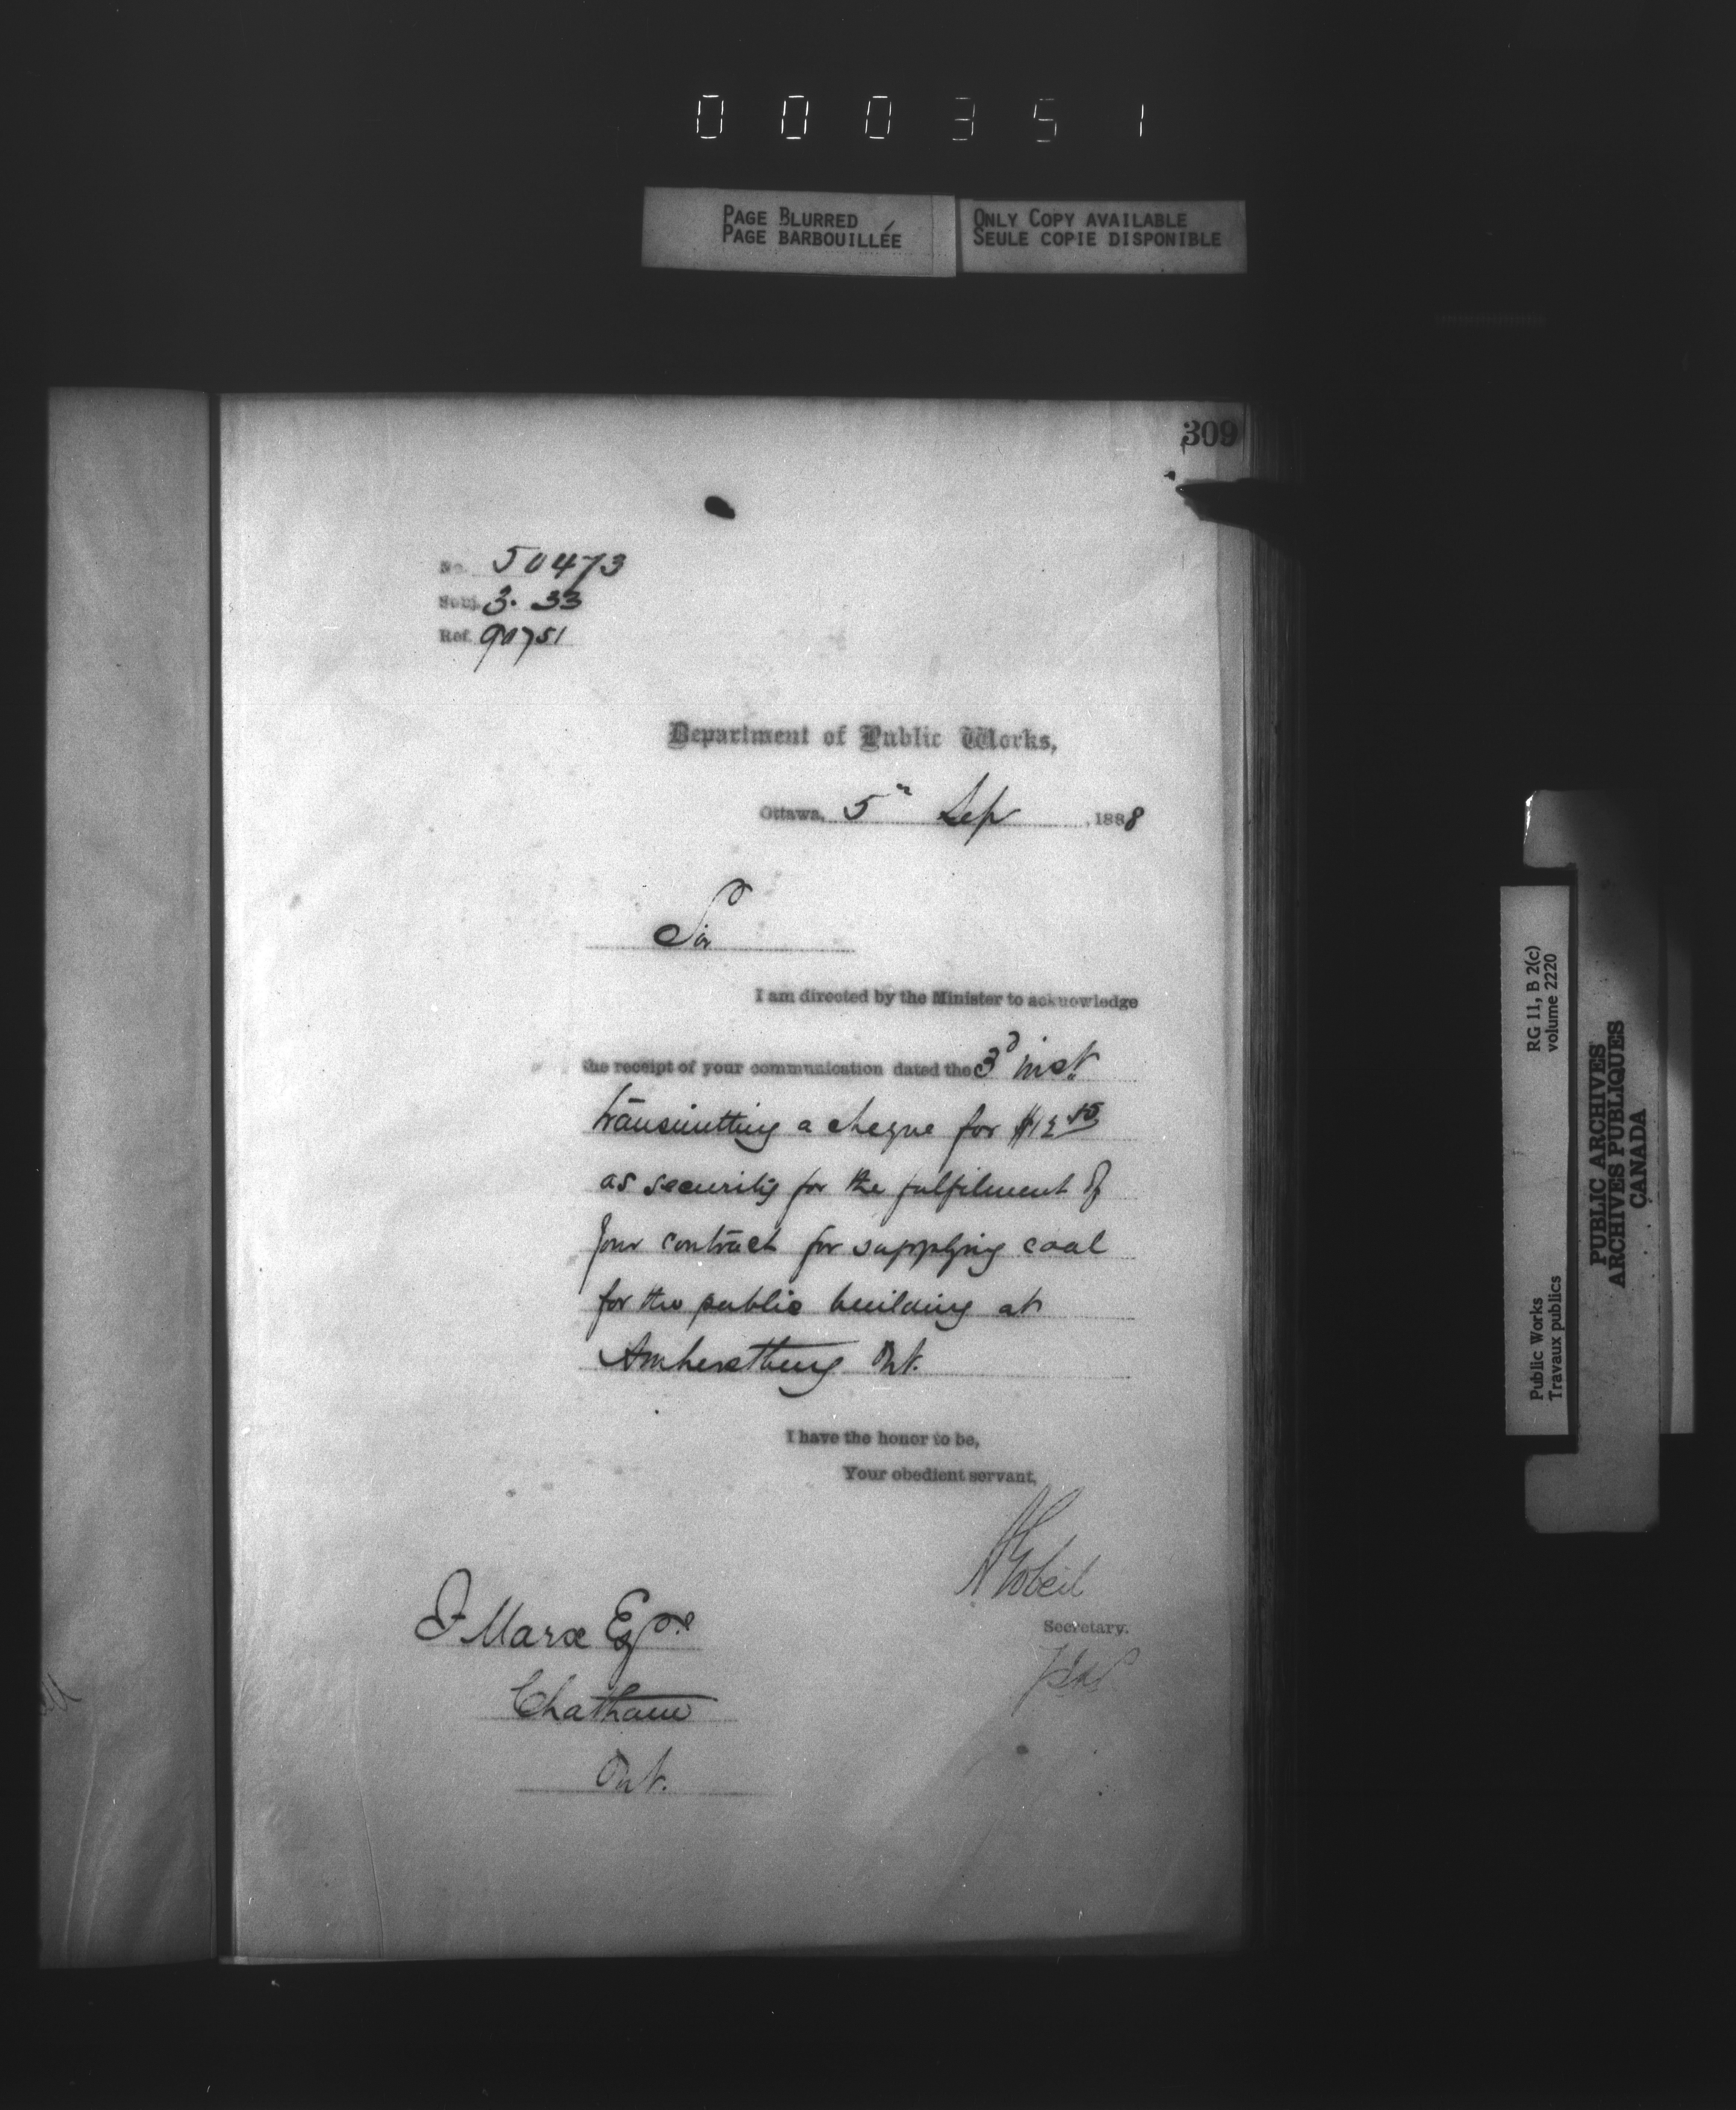 0 0 0 3 5 1
PAGE BLURRED
PAGE BARBOUILLÉE
ONLY COPY AVAILABLE
SEULE COPIE DISPONIBLE
309
No. 50473
Subj. 3. 33
Ref. 90751
Department of Public Works,
Ottawa, 5th Sep, 1888
Sir
I am directed by the Minister to acknowledge
the receipt of your communication dated the 3d inst.
transmitting a cheque for
as security for the fulfilment of
your contract for supplying coal
for the public building at
Amherstburg Ont.
I have the honor to be,
Your obedient servant,
A Gobeil
Secretary.
Marx Esqre
Chatham
Ont.
RG 11, B 2(c)
volume 2220
Public Works
Travaux publics
PUBLIC ARCHIVES
ARCHIVES PUBLIQUES
CANADA